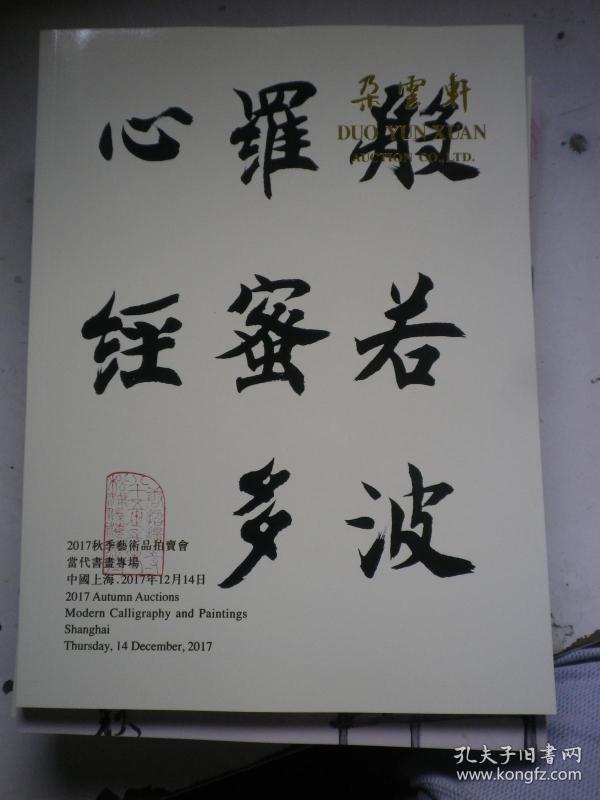 朵雲軒
DUO YUN XUAN
AUCTION CO., LTD.
般若波
羅蜜多
心經
2017秋季藝術品拍賣會
當代書畫專場
中國上海.2017年12月14日
2017 Autumn Auctions
Modern Calligraphy and Paintings
Shanghai
Thursday, 14 December, 2017
孔夫子旧書网
www.kongfz.com